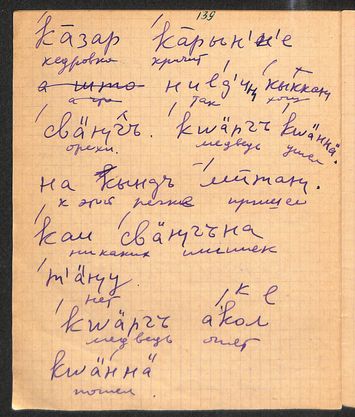 139
ка̄зар ка̄рын'и'е
кедровка кричит
а што нивд'иӈ кыккаӈ
а что так хочу
свäӈгъ. кшäргъ кшäннä.
орехи. медведь ушел
на кындъ мӣтаӈ.
к этой речке пришел
каи свäӈгъна
никаких шишек
т'äӈу
нет
кшäргъ äкол
медведь опят
кшäннä
пошел.